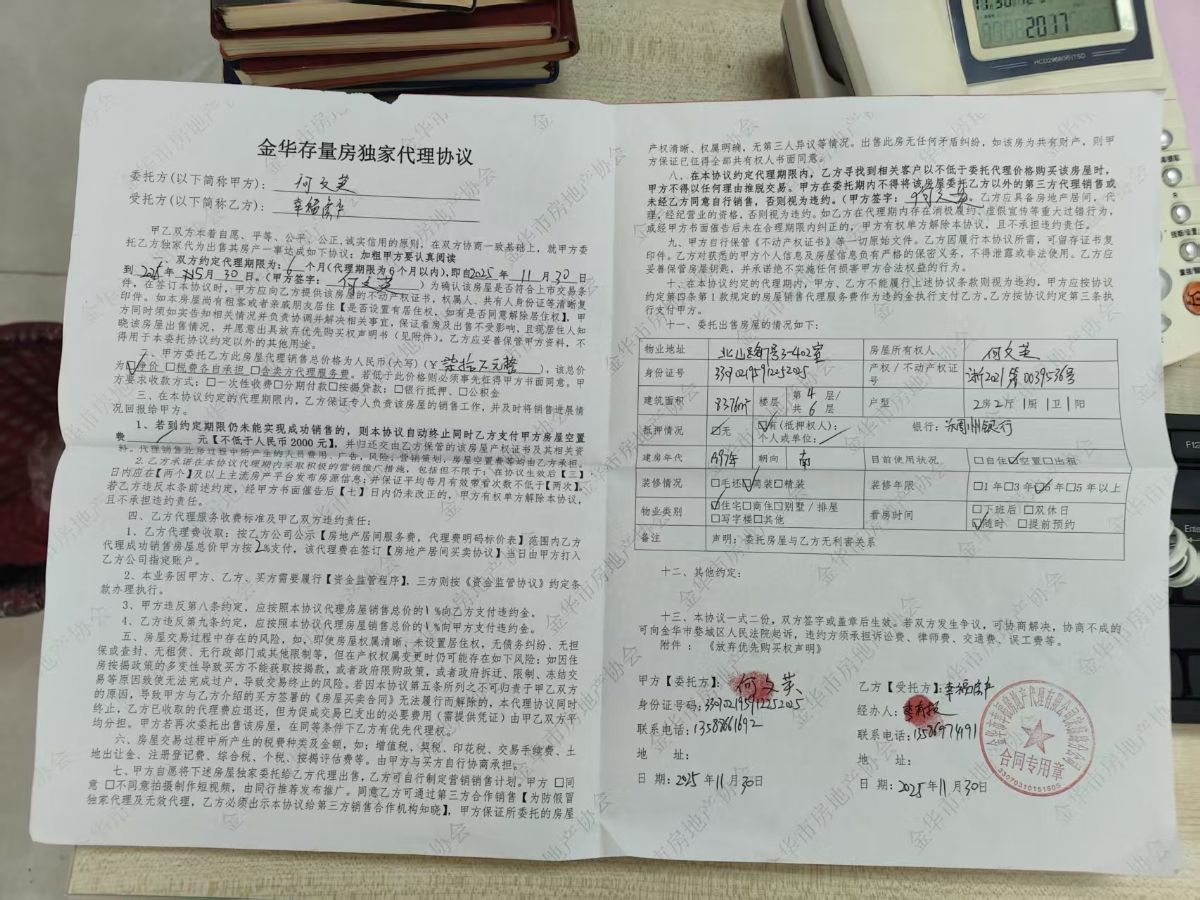 金华存量房独家代理协议
委托方(以下简称甲方)： 何文英
受托方(以下简称乙方)： 幸福房产
甲乙双方本着自愿、平等、公平、公正,诚实信用的原则，在双方协商一致基础上，就甲方委
托乙方独家代为出售其房产一事达成如下协议：加粗甲方要认真阅读
一、双方约定代理期限为: 6 个月(代理期限为6个月以内),即自2025 年 11 月 30 日
到 2026年 5月 30 日。(甲方签字: 何文英 ) 为确认该房屋是否符合上市交易条
件，在签订本协议时，甲方应向乙方提供该房屋的不动产权证书，权属人、共有人身份证等清晰复
印件。如本房屋尚有租客或者亲戚朋友居住【是否设置有居住权，如有是否同意解除居住权】，甲
方同时须如实告知相关情况并负责协调并解决相关事宜，保证看房及出售不受影响，且现居住人知
晓该房屋出售情况，并愿意出具放弃优先购买权声明书（见附件）。乙方应妥善保管甲方资料，不
得用于本委托协议约定以外的其他用途。
二、甲方委托乙方此房屋代理销售总价格为人民币(大写)(¥ 柒拾万元整 )，该总价
为☑净价 □税费各自承担 □含卖方代理服务费。若低于此价格则必须事先征得甲方书面同意。甲
方要求收款方式：□一次性收费□分期付款□按揭贷款；□银行抵押、□公积金
三、在本协议约定的代理期限内，乙方保证专人负责该房屋的销售工作，并及时将销售进展情
况回报给甲方。
1、若到约定期限仍未能实现成功销售的，则本协议自动终止同时乙方支付甲方房屋空置
费 元【不低于人民币 2000 元】，并归还交由乙方保管的该房屋产权证书及其相关资
料。代理销售业房过程中所产生的人员费用、广告、风险、营销策划、房屋空置费等均由乙方承担。
2、乙方承诺在本协议代理期限内采取积极的营销推广措施，包括但不限于：在协议生效后【三】
日内应在【两个】及以上主流房产平台发布房源信息;并保证平均每月有效带看次数不低于【两次】。
若乙方违反本条前述约定，经甲方书面催告后【七】日内仍未改正的，甲方有权单方解除本协议，
且不承担违约责任。
四、乙方代理服务收费标准及甲乙双方违约责任：
1、乙方代理费收取：按乙方公司公示【房地产居间服务费，代理费明码标价表】范围内乙方
代理成功销售房屋总价甲方按 2%支付，该代理费在签订【房地产居间买卖协议】当日由甲方打入
乙方公司指定账户。
2、本业务因甲方、乙方、买方需要履行【资金监管程序】，三方则按《资金监管协议》约定条
款办理执行。
3、甲方违反第八条约定，应按照本协议代理房屋销售总价的1 %向乙方支付违约金。
4、乙方违反第九条约定，应按照本协议代理房屋销售总价的1 %向甲方支付违约金。
五、房屋交易过程中存在的风险，如、即使房屋权属清晰、未设置居住权，无债务纠纷、无担
保或查封、无租赁、无行政部门或其他限制等，但在产权权属变更时仍可能存在如下风险：如因住
房按揭政策的多变性导致买方不能获取按揭款，或者政府限购政策，或者政府拆迁、限制、冻结交
易等原因致使无法完成过户，导致交易终止的风险。若因本协议第五条所列之不可归责于甲乙双方
的原因，导致甲方与乙方介绍的买方签署的《房屋买卖合同》无法履行而解除的，本代理协议同时
终止，乙方已收取的代理费应退还，但为促成交易已支出的必要费用（需提供凭证）由甲乙双方平
均分担。甲方若再次委托出售该房屋，在同等条件下乙方有优先代理权。
六、房屋交易过程中所产生的税费种类及金额，如：增值税，契税、印花税、交易手续费、土
地出让金、注册登记费、综合税、个税、按揭评估费等。由甲方与买方自行协商承担。
七、甲方自愿将下述房屋独家委托给乙方代理出售，乙方可自行制定营销销售计划。甲方 □同
意 □不同意拍摄制作短视频，由同行推荐发布推广。同意乙方可通过第三方合作销售【为防假冒
独家代理及无效代理，乙方必须出示本协议给第三方销售合作机构知晓】，甲方保证所委托的房屋
产权清晰、权属明确，无第三人异议等情况。出售此房无任何矛盾纠纷，如该房为共有财产，则甲
方保证已征得全部共有权人书面同意。
八、在本协议约定代理期限内，乙方寻找到相关客户以不低于委托代理价格购买该房屋时，
甲方不得以任何理由推脱交易。甲方在委托期内不得将该房屋委托乙方以外的第三方代理销售或
未经乙方同意自行销售，否则视为违约。(甲方签字： 何文英 。乙方应具备房地产居间，代
理，经纪营业的资格，否则视为违约。如乙方在代理期内存在消极履约、虚假宣传等重大过错行为，
或经甲方书面催告后未在合理期限内纠正的，甲方有权单方解除本协议，且不承担违约责任。
九、甲方自行保管《不动产权证书》等一切原始文件。乙方因履行本协议所需，可留存证书复
印件。乙方对获悉的甲方个人信息及房屋信息负有严格的保密义务，不得泄露或非法使用。乙方应
妥善保管房屋钥匙，并承诺绝不实施任何损害甲方合法权益的行为。
十、在本协议约定的代理期内，甲方、乙方不能履行上述协议条款则视为违约，甲方应按协议
约定第四条第 1 款规定的房屋销售代理服务费作为违约金执行支付乙方。乙方按协议约定第三条执
行支付甲方。
十一、委托出售房屋的情况如下：
物业地址 北山路7号3-402室 房屋所有权人 何文英
身份证号 330702195912252025 产权 / 不动产权证号 浙2021第0039536号
建筑面积 93.76㎡ 楼层 第 4 层/共 6 层 户型 2房2厅1厨1卫1阳
抵押情况 □无 ☑有(抵押权人)：个人或单位： 银行：湖州银行
建房年代 1997年 朝向 南 目前使用状况 □自住☑空置□出租
装修情况 □毛坯☑简装□精装 装修年限 □1年□3年☑5年□5年以上
物业类别 ☑住宅□商住□别墅 / 排屋 □写字楼□其他 看房时间 □下班后 □双休日 ☑随时 □提前预约
备注 声明：委托房屋与乙方无利害关系
十二、其他约定：
十三、本协议一式二份，双方签字或盖章后生效。若双方发生争议，可协商解决，协商不成的
可向金华市婺城区人民法院起诉，违约方须承担诉讼费、律师费、交通费、误工费等。
附件 ： 《放弃优先购买权声明》
甲方【委托方】： 何文英
身份证号码: 330702195912252025
联系电话: 13588661692
地 址：
日 期: 2025 年11月30日
乙方【受托方】: 幸福房产
经办人:
联系电话: 13586971491
地 址：
日 期: 2025 年11月30日
合同专用章
33070310151605
HCD2968(05)TSD
2017
F12
Enter